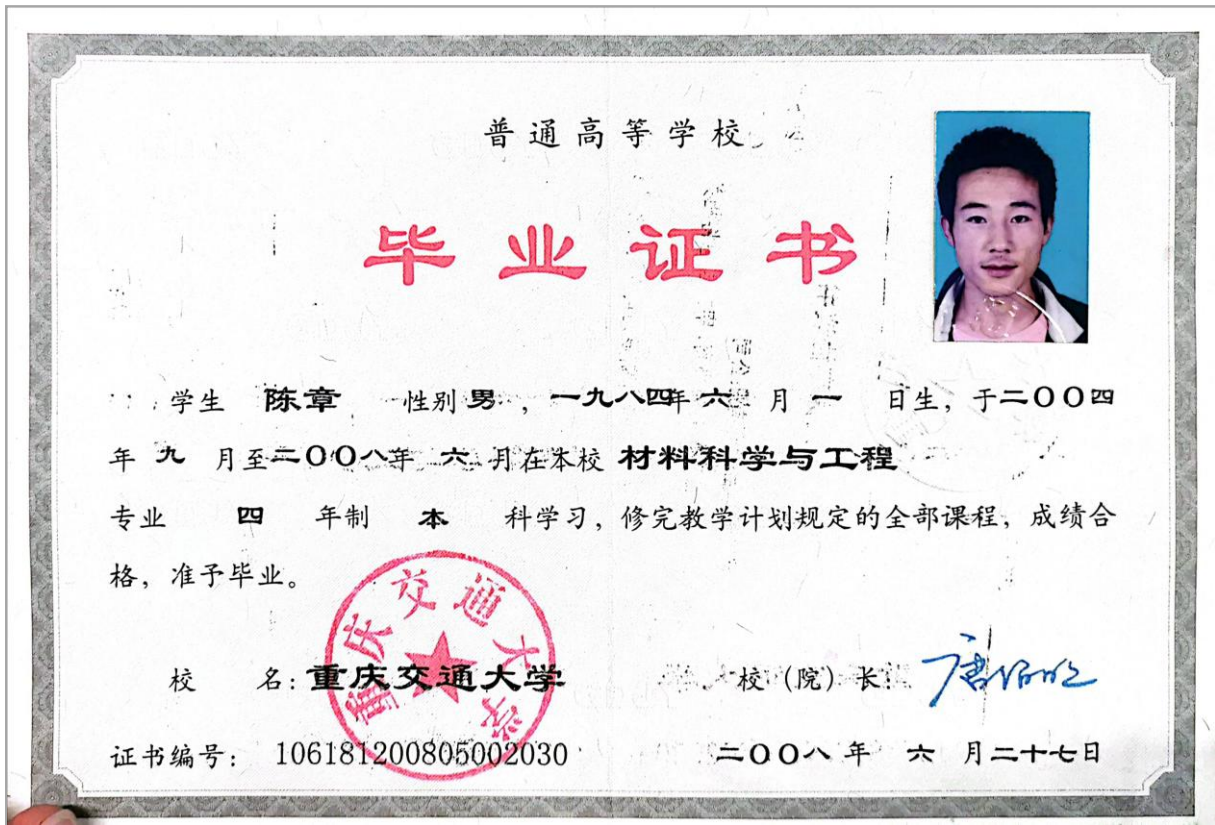 普通高等学校
毕业证书
学生 陈章 性别 男，一九八四年 六 月 一 日生，于二〇〇四
年 九 月至二〇〇八年 六 月在本校 材料科学与工程
专业 四 年制 本 科学习，修完教学计划规定的全部课程，成绩合
格，准予毕业。
重庆交通大学
校 名：重庆交通大学 校（院）长：唐伯明
证书编号： 106181200805002030 二〇〇八 年 六 月二十七日